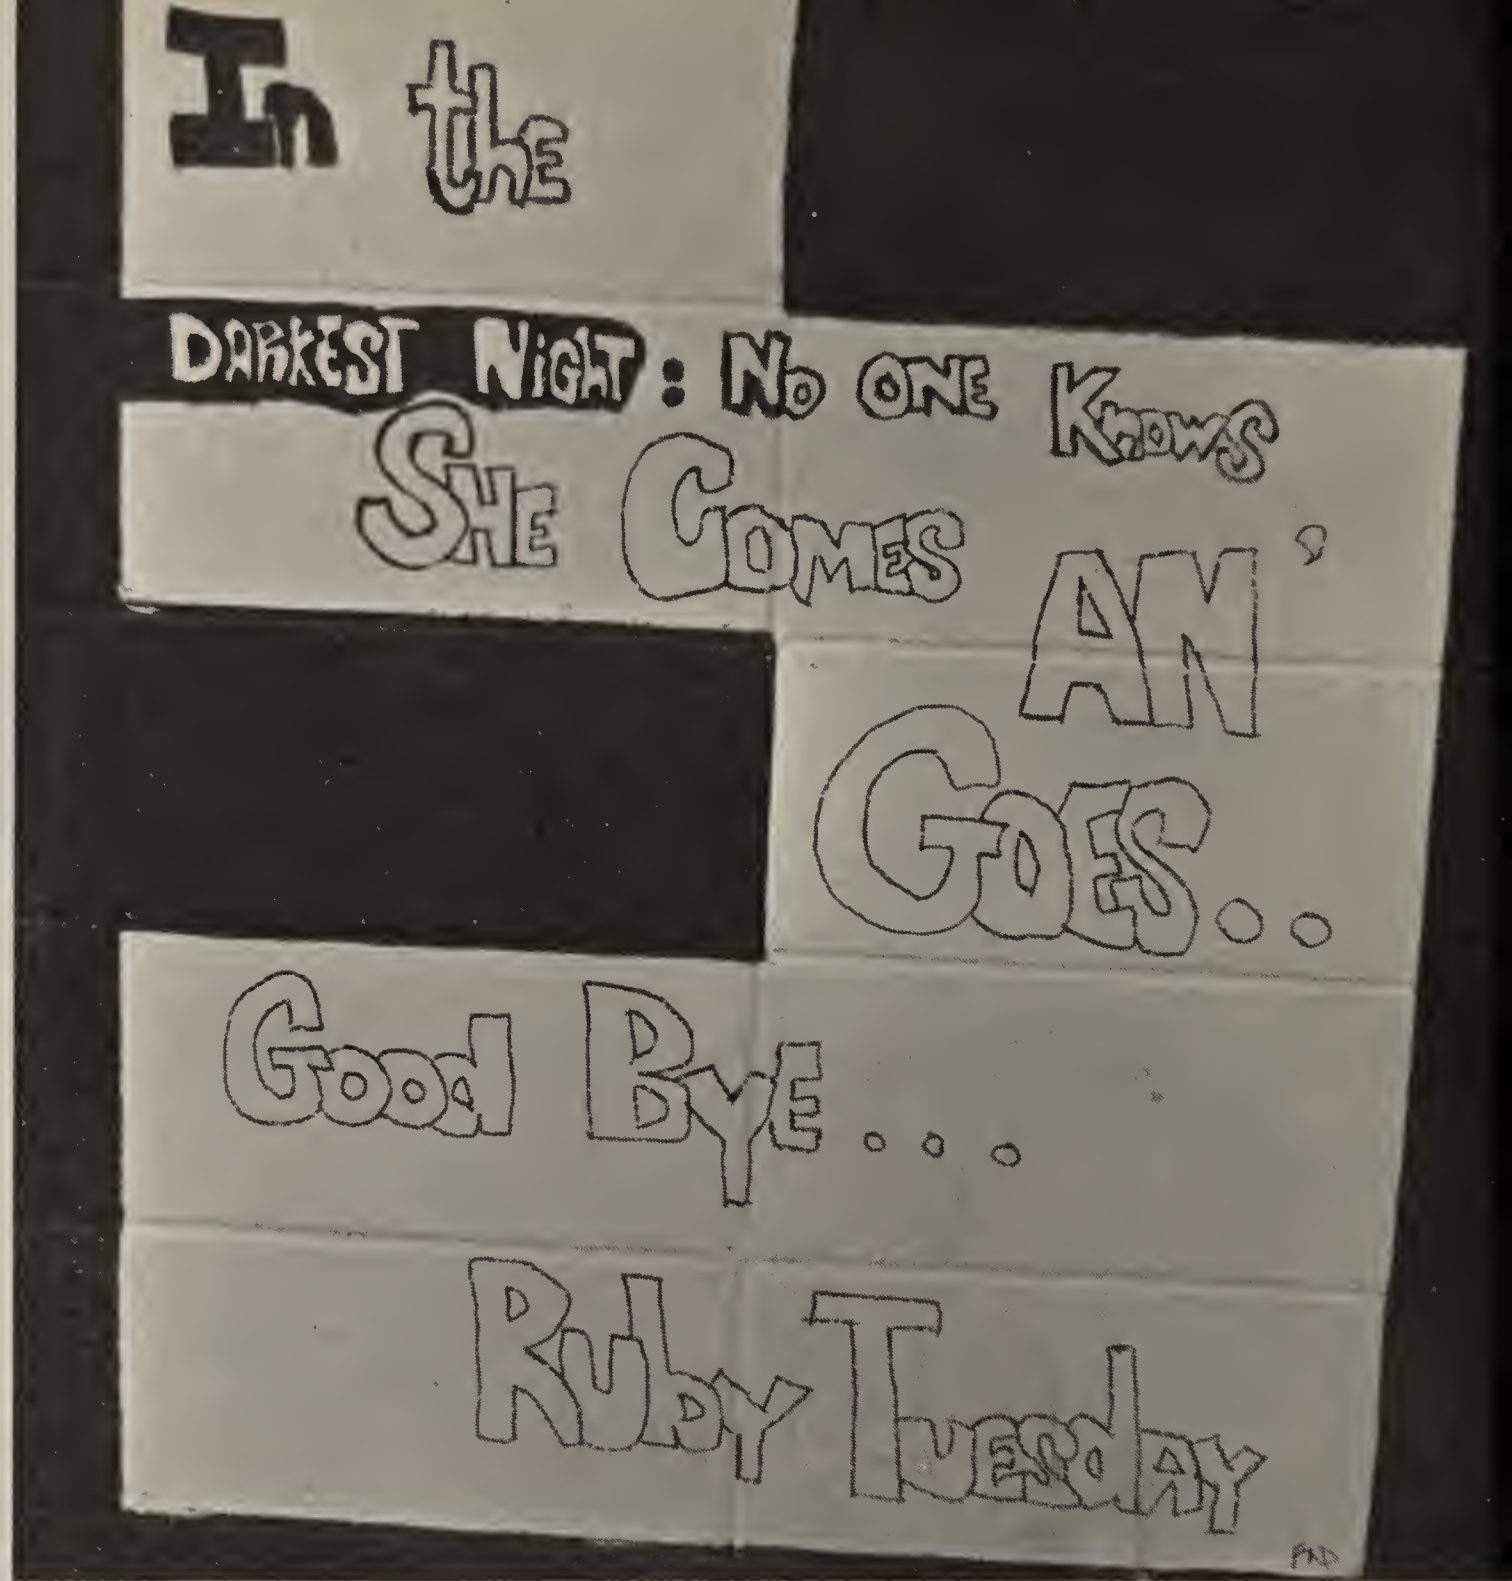 In the
DARKEST NiGHT: No ONE KnowS
SHE COMES AN'
GOES..
Good BYE...
RUbY TUESdAY